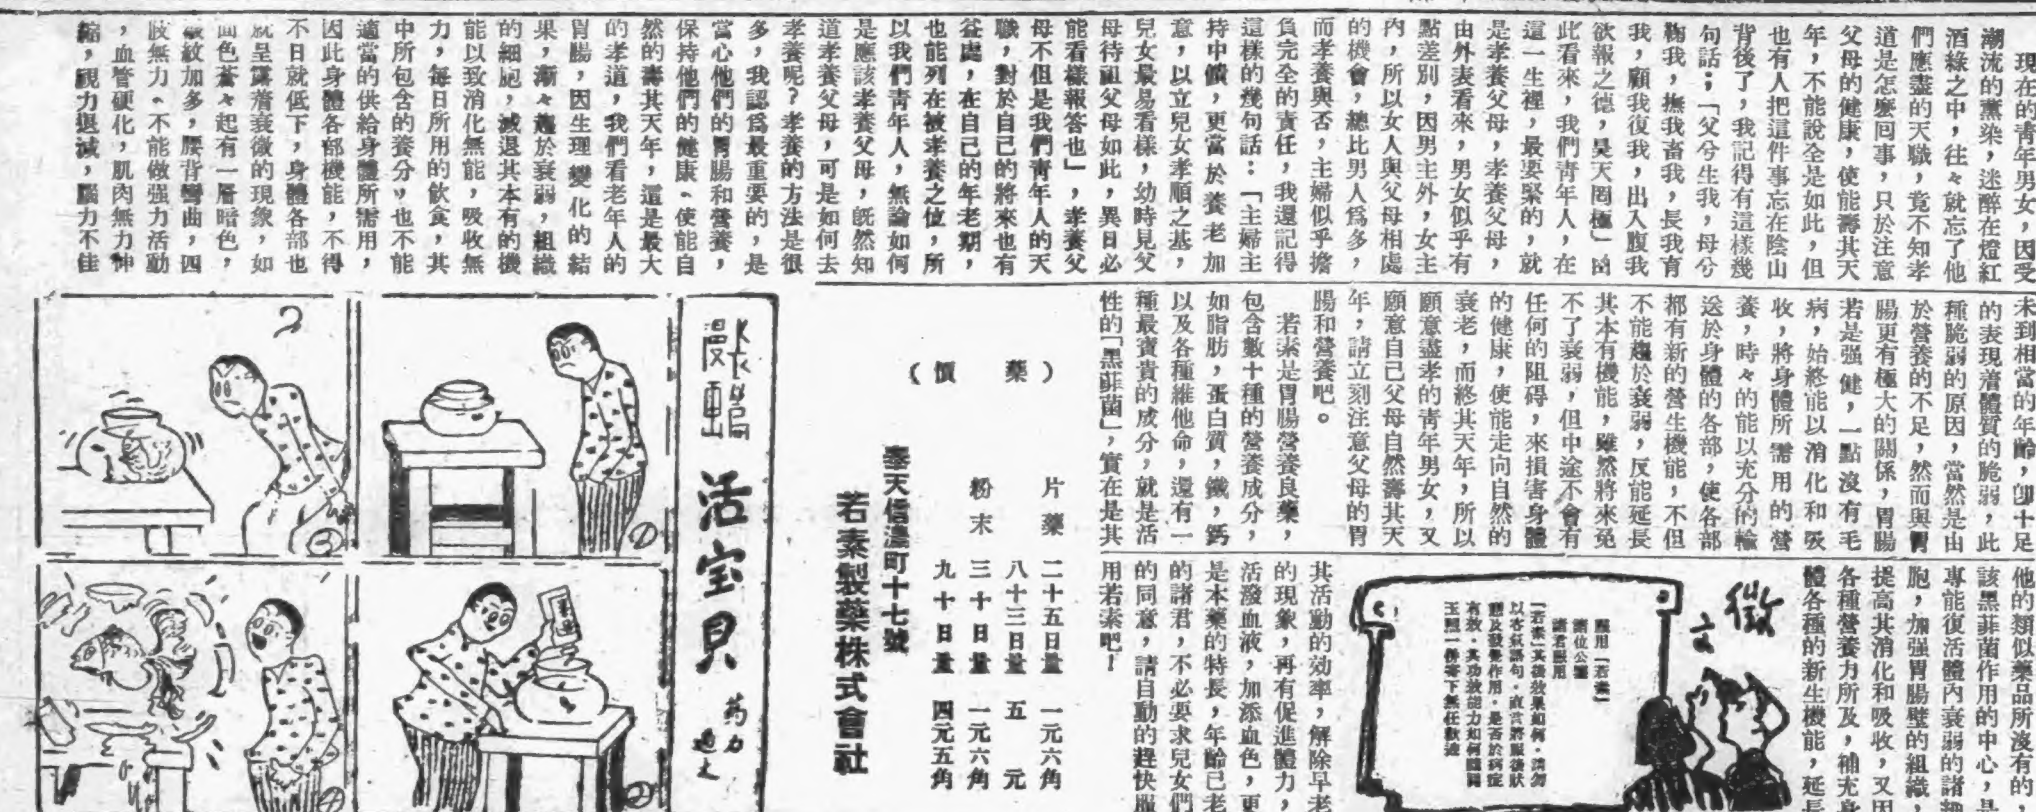 現在的靑年男女，因受
潮流的薰染，迷醉在燈紅
酒綠之中，往々就忘了他
們應盡的天職，竟不知孝
道是怎麼回事，只於注意
父母的健康，使能壽其天
年，不能說全是如此，但
也有人把這件事忘在陰山
背後了，我記得有這樣幾
句話；「父兮生我，母兮
鞠我，撫我畜我，長我育
我，顧我復我，出入腹我
欲報之德，昊天罔極」由
此看來，我們靑年人，在
這一生裡，最要緊的，就
是孝養父母，孝養父母，
由外表看來，男女似乎有
點差別，因男主外，女主
內，所以女人與父母相處
的機會，總比男人爲多，
而孝養與否，主婦似乎擔
負完全的責任，我還記得
這樣的幾句話：「主婦主
持中饋，更當於養老加
意，以立兒女孝順之基，
兒女最易看樣，幼時見父
母待祖父母如此，異日必
能看樣報答也」，孝養父
母不但是我們靑年人的天
職，對於自己的將來也有
益處，在自己的年老期，
也能列在被孝養之位，所
以我們靑年人，無論如何
是應該孝養父母，旣然知
道孝養父母，可是如何去
孝養呢？孝養的方法是很
多，我認爲最重要的，是
當心他們的胃腸和營養，
保持他們的健康、使能自
然的壽其天年，這是最大
的孝道，我們看老年人的
胃腸，因生理變化的結
果，漸々趨於衰弱，組織
的細胞，減退其本有的機
能以致消化無能，吸收無
力，每日所用的飮食，其
中所包含的養分，也不能
適當的供給身體所需用，
因此身體各部機能，不得
不日就低下，身體各部也
就呈露着衰微的現象，如
面色蒼々起有一層暗色，
皺紋加多，腰背彎曲，四
肢無力、不能做强力活動
，血管硬化，肌肉無力伸
縮，視力退減，腦力不佳
未到相當的年齡，卽十足
的表現着體質的脆弱，此
種脆弱的原因，當然是由
於營養的不足，然而與胃
腸更有極大的關係，胃腸
若是强健，一點沒有毛
病，始終能以消化和吸
收，將身體所需用的營
養，時々的能以充分的輸
送於身體的各部，使各部
都有新的營生機能，不但
不能趨於衰弱，反能延長
其本有機能，雖然將來免
不了衰弱，但中途不會有
任何的阻碍，來損害身體
的健康，使能走向自然的
衰老，而終其天年，所以
願意盡孝的靑年男女，又
願意自己父母自然壽其天
年，請立刻注意父母的胃
腸和營養吧。
若素是胃腸營養良藥，
包含數十種的營養成分，
如脂肪，蛋白質，鐵，鈣
以及各種維他命，還有一
種最寶貴的成分，就是活
性的「黑菲菌」，實在是其
他的類似藥品所沒有的，
該黑菲菌作用的中心，是
專能復活體內衰弱的諸細
胞，加强胃腸壁的組織，
提高其消化和吸收，又因
各種營養力所及，補充身
體各種的新生機能，延長
其活動的效率，解除早老
的現象，再有促進體力，
活潑血液，加添血色，更
是本藥的特長，年齡已老
的諸君，不必要求兒女們
的同意，請自動的趕快服
用若素吧！
徵文
服用「若素」
諸位公鑒
諸君服用
「若素」其後效果如何，請勿
以客氣語句，直言將服後狀
態及發奮作用，是否於病症
有效，其功效能力如何賜
玉照一併寄下無任歡迎
（藥價）
片藥 二十五日量 一元六角
八十三日量 五元
粉末 三十日量 一元六角
九十日量 四元五角
奉天信濃町十七號
若素製藥株式會社
漫畫
活宝貝
药力过大